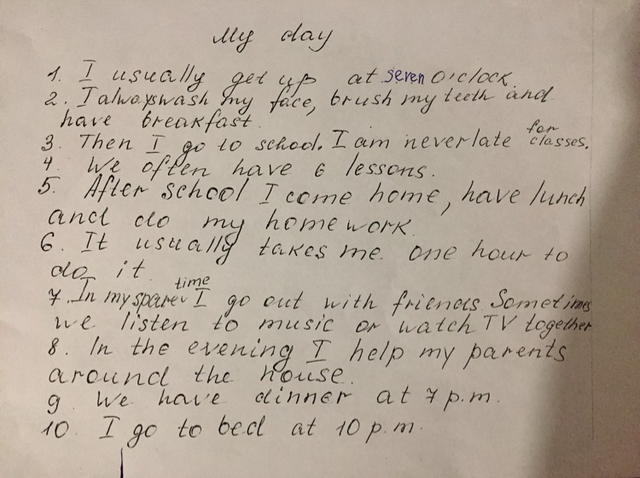 My day
1. I usually get up at seven o'clock.
2. I always wash my face, brush my teeth and
have breakfast.
3. Then I go to school. I am never late for classes.
4. We often have 6 lessons.
5. After school I come home, have lunch
and do my homework.
6. It usually takes me one hour to
do it.
7. In my spare time I go out with friends Sometimes
we listen to music or watch TV together
8. In the evening I help my parents
around the house.
9. We have dinner at 7 p.m.
10. I go to bed at 10 p.m.